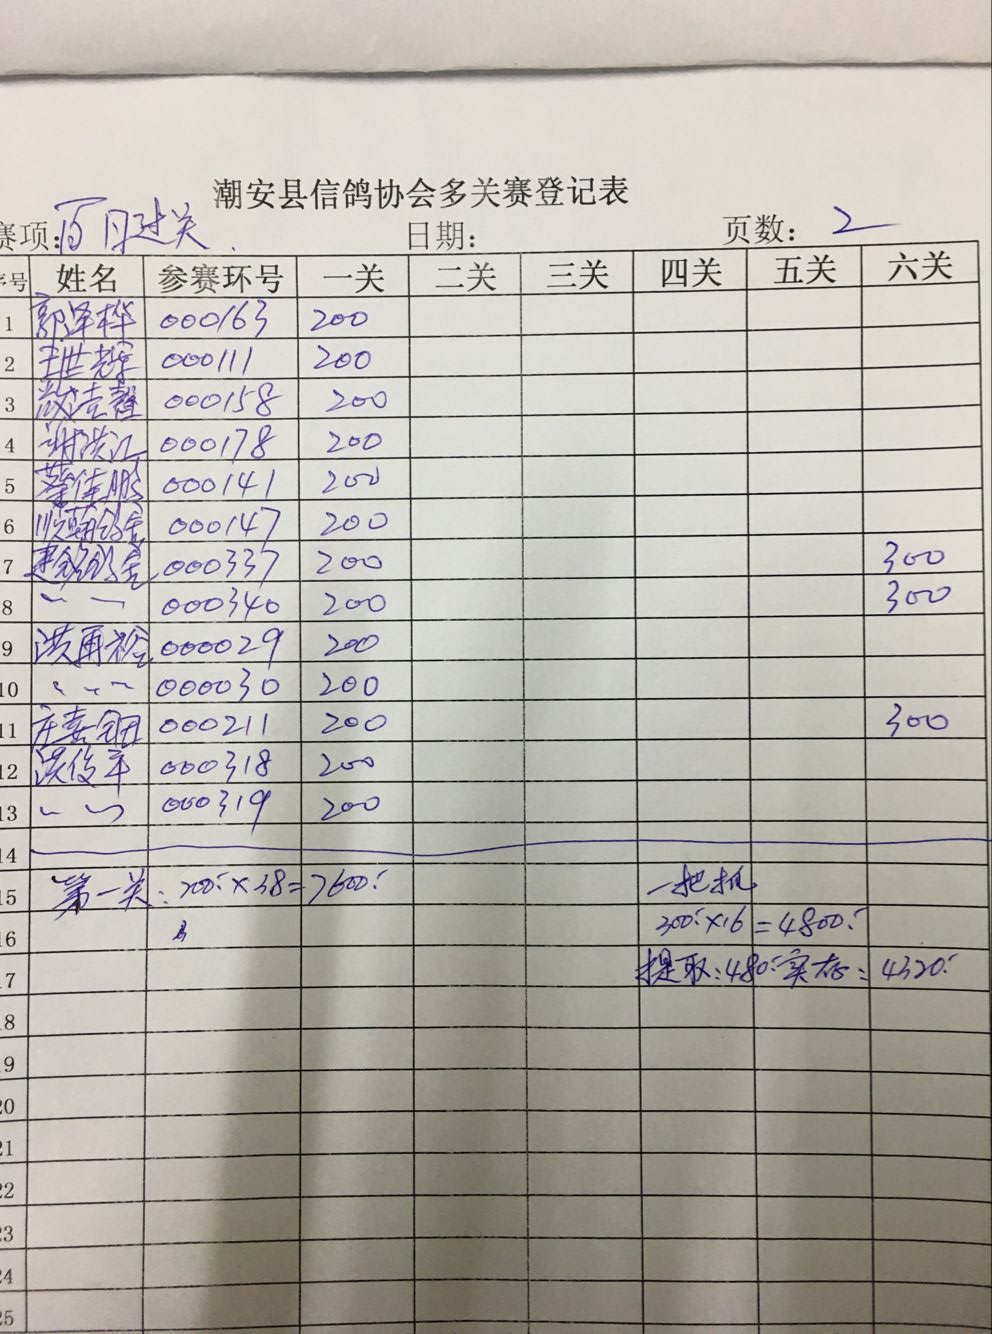 潮安县信鸽协会多关赛登记表
赛项: 百月过关 日期: 页数: 2
序号 姓名 参赛环号 一关 二关 三关 四关 五关 六关
1 郭泽桦 000163 200
2 王世 000111 200
3 000158 200
4 谢洪江 000178 200
5 蔡佳鹏 000141 200
6 000147 200
7 000337 200 300
8 〃 〃 000340 200 300
9 洪再裕 000029 200
10 〃 〃 〃 000030 200
11 庄喜钿 000211 200 300
12 洪俊平 000318 200
13 〃 〃 000319 200
14
15 第一关: 200 × 38 = 7600 一把抓
16 300 × 16 = 4800
17 提取: 480 实存: 4320
18
19
20
21
22
23
24
25